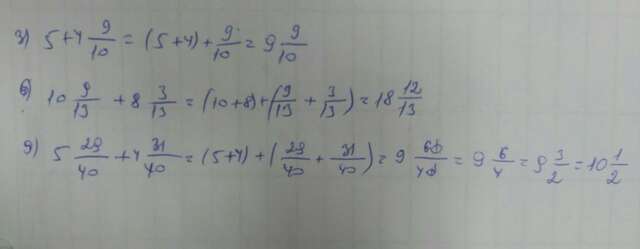 з) 5 + 4 9/10 = (5 + 4) + 9/10 = 9 9/10
б) 10 9/13 + 8 3/13 = (10 + 8) + (9/13 + 3/13) = 18 12/13
д) 5 29/40 + 4 31/40 = (5 + 4) + (29/40 + 31/40) = 9 60/40 = 9 6/4 = 9 3/2 = 10 1/2